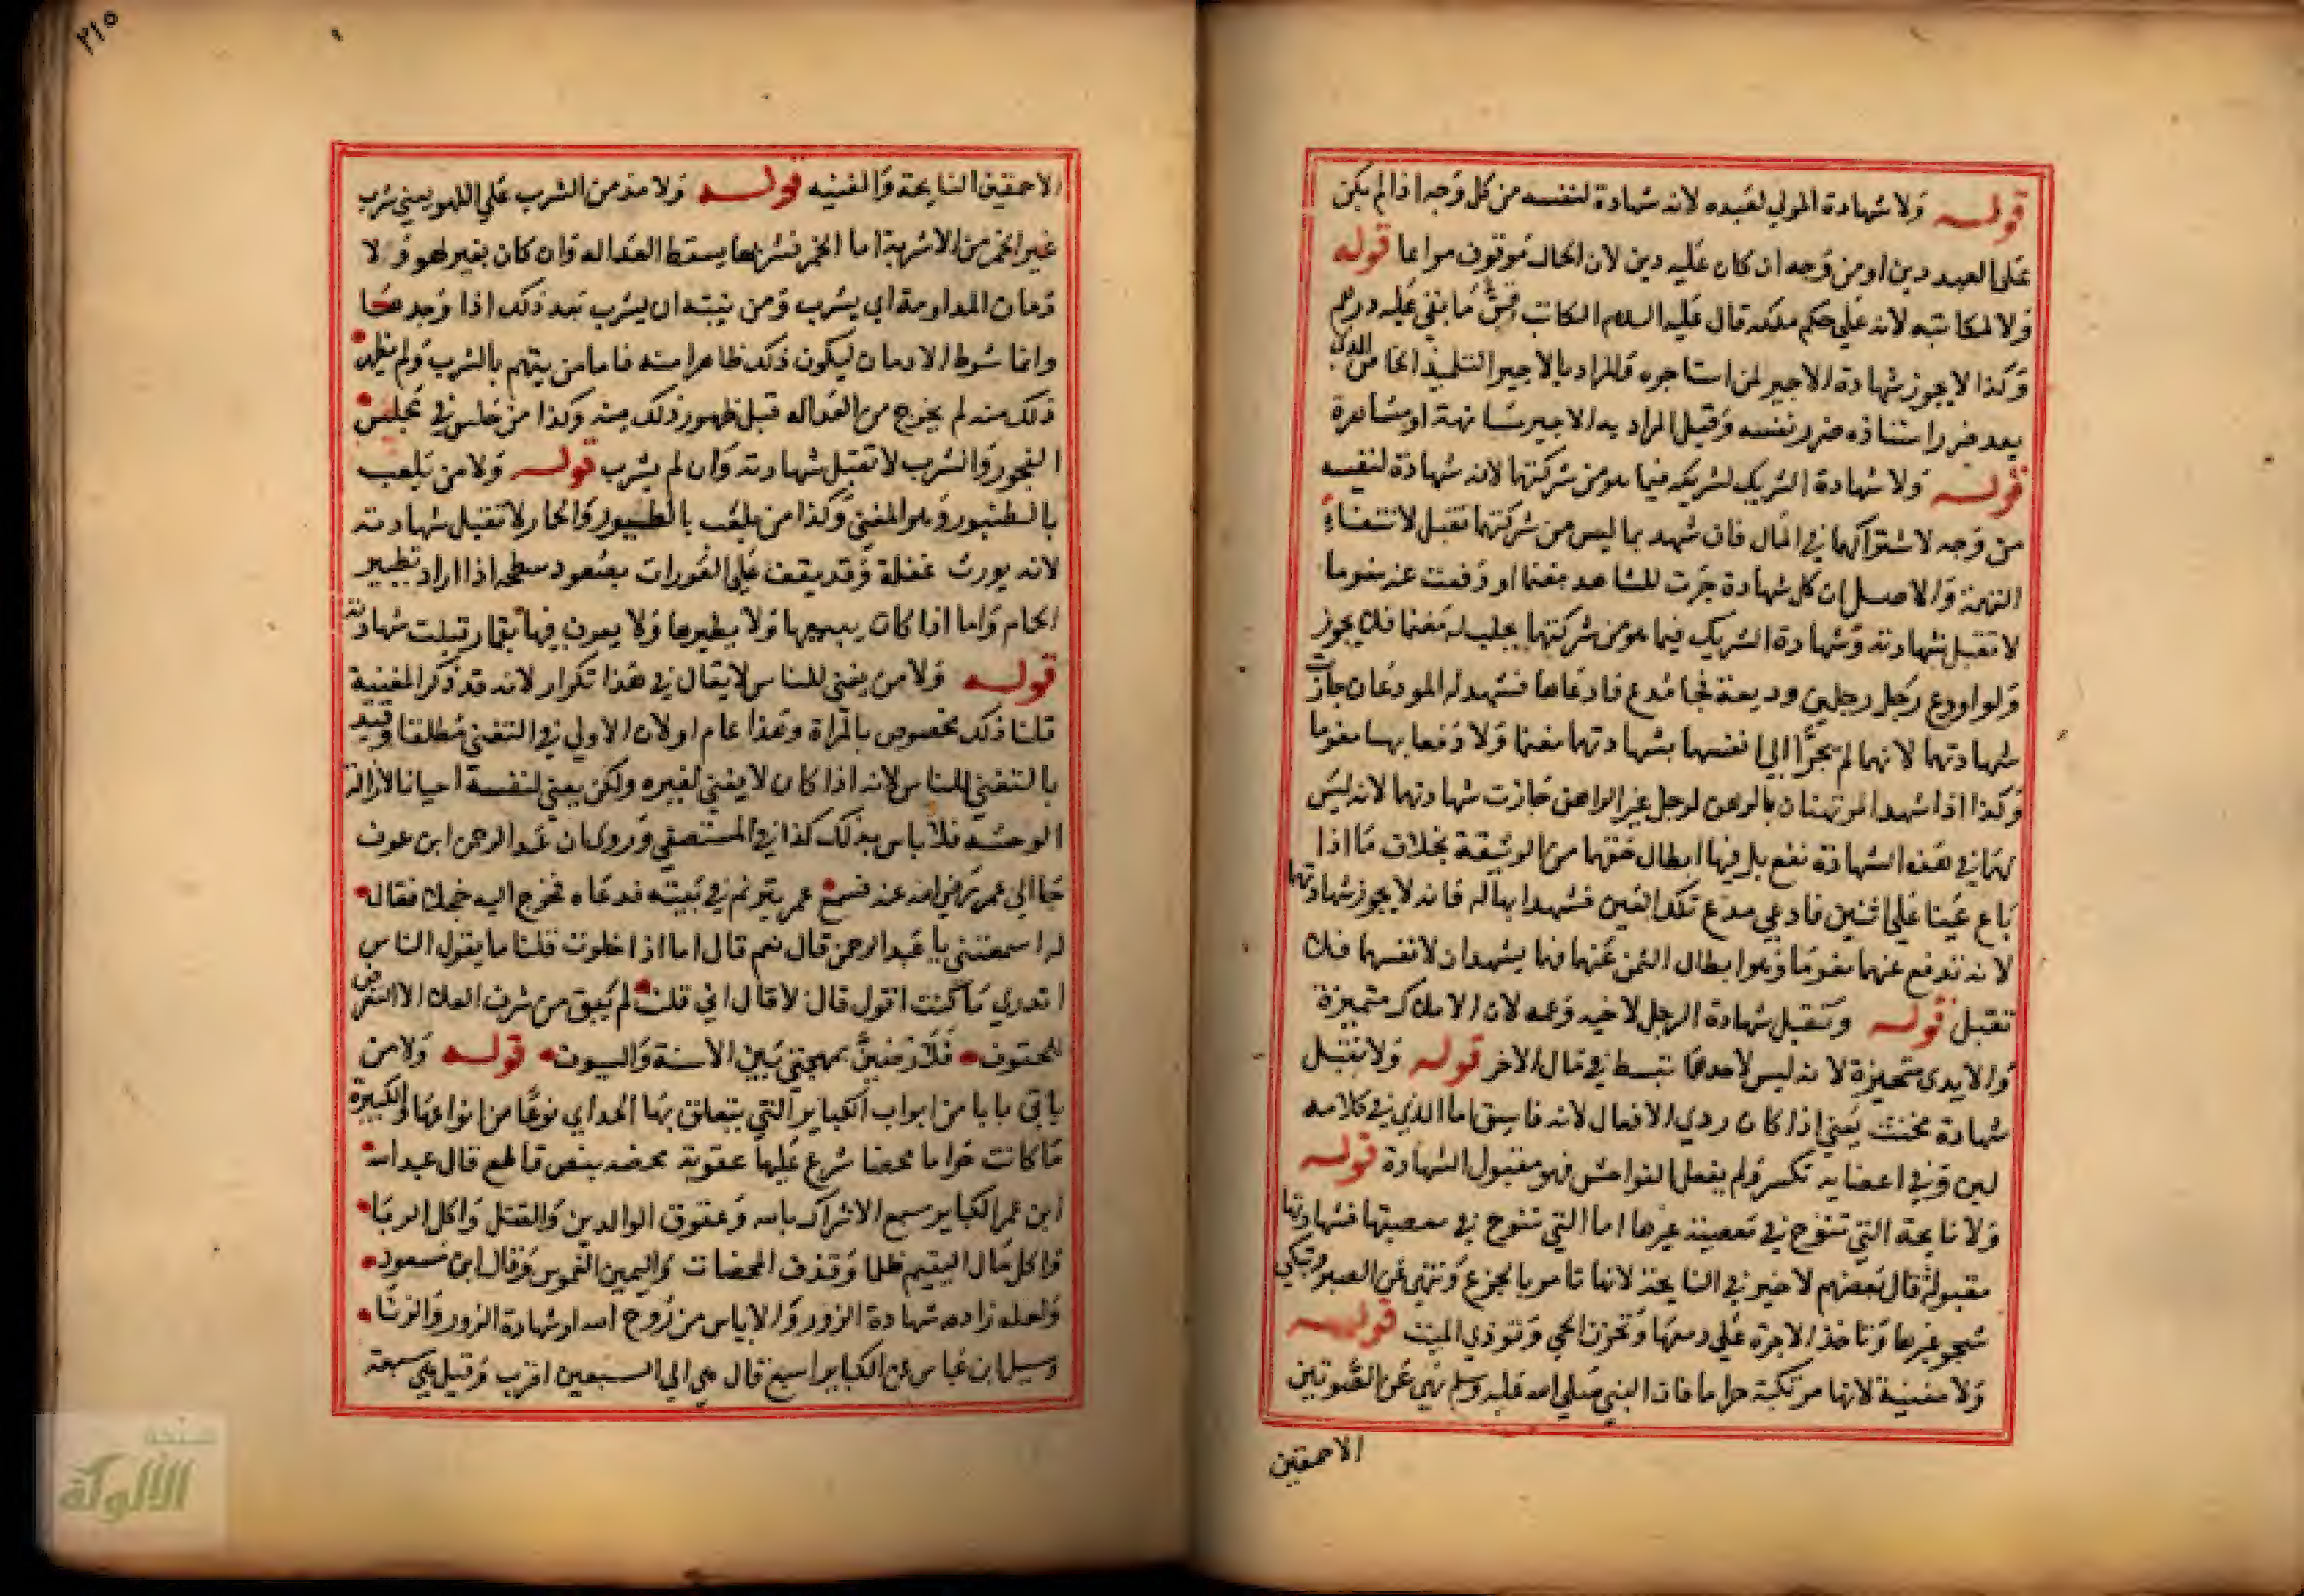 قوله ولا شهادة المولي لعبده لانه شهادة لنفسه من كل وجه اذا لم يكن
على العبد دين او من وجه ان كان عليه دين لان الحال موقوف مراعا قوله
ولا لمكاتبه لانه علي حكم ملكه قال عليه السلام المكاتب قن ما بقي عليه درهم
وكذا لا يجوز شهادة الاجير لمن استاجره والمراد بالاجير التلميذ الخاص الذي
يعد ضرر استاذه ضرر نفسه وقيل المراد به الاجير مسانهة او مشاهرة
قوله ولا شهادة الشريك لشريكه فيما هو من شركتهما لانه شهادة لنفسه
من وجه لاشتراكهما في المال فان شهد بما ليس من شركتهما تقبل لانتفاء
التهمة والاصل ان كل شهادة جرت للشاهد مغنما او دفعت عنه مغرما
لا تقبل شهادته وشهادة الشريك فيما هو من شركتهما يجلب له مغنما فلا يجوز
ولو اودع رجل رجلين وديعة فجا مدع فادعاها فشهد له المودعان جازت
شهادتهما لانهما لم يجرا الي انفسهما بشهادتهما مغنما ولا دفعا بها مغرما
وكذا اذا شهد المرتهنان بالرهن لرجل غير الراهن جازت شهادتهما لانه ليس
لهما في هذه الشهادة نفع بل فيها ابطال حقهما من الوثيقة بخلاف ما اذا
باع عينا علي اثنين فادعي مدع تلك العين فشهدا بها له فانه لا يجوز شهادتهما
لانه تدفع عنهما مغرما وهو ابطال الثمن عنهما فهما يشهدان لانفسهما فلا
تقبل قوله وتقبل شهادة الرجل لاخيه وعمه لان الاملاك متميزة
والايدي متحيزة لانه ليس لاحدهما تبسط في مال الاخر قوله ولا تقبل
شهادة مخنث يعني اذا كان ردي الافعال لانه فاسق اما الذي في كلامه
لين وفي اعضايه تكسر ولم يفعل الفواحش فهو مقبول الشهادة قوله
ولا نايحة التي تنوح في مصيبة غيرها اما التي تنوح في مصيبتها فشهادتها
مقبولة قال بعضهم لا خير في النايحة لانها تامر بالجزع وتنهي عن الصبر وتبكي
شجو غيرها وتاخذ الاجرة علي دمعها وتحزن الحي وتوذي الميت قوله
ولا مغنية لانها مرتكبة حراما فان النبي صلي الله عليه وسلم نهي عن الصوتين
الاحمقين
٢١٥
الاحمقين النايحة والمغنيه قوله ولا مدمن الشرب علي اللهو يعني شرب
غير الخمر من الاشربة اما الخمر فشربها يسقط العداله وان كان بغير لهو ولا
دمان المداومة اي يشرب ومن نيته ان يشرب بعد ذلك اذا وجده
وانما شرط الادمان ليكون ذلك ظاهرا منه فاما من يتهم بالشرب ولم يظهر
ذلك منه لم يخرج من العداله قبل ظهور ذلك منه وكذا من جلس في مجلس
الفجور والشرب لا تقبل شهادته وان لم يشرب قوله ولا من يلعب
بالطنبور وهو المغني وكذا من يلعب بالطيور والحمام لا تقبل شهادته
لانه يورث غفلة وقد يقف علي العورات بصعود سطحه اذا اراد تطيير
الحمام واما اذا كان يبيعها ولا يطيرها ولا يعرف فيها بقمار قبلت شهادته
قوله ولا من يغني للناس لا يقال في هذا تكرار لانه قد ذكر المغنية
قلنا ذلك مخصوص بالمراة وهذا عام او لان الاولي في التغني مطلقا وقيد
بالتغني للناس لانه اذا كان لا يغني لغيره ولكن يغني لنفسه احيانا لازالة
الوحشه فلا باس بذلك كذا في المستصفي وروي ان عبد الرحمن ابن عوف
جا الي عمر رضي الله عنه فسمع عمر يترنم في بيته فدعاه فخرج اليه خجلا فقال
له اسمعتني يا عبد الرحمن قال نعم قال اما اذا خلونا قلنا ما يقول الناس
اتدري ما كنت اقول قال لا قال اني قلت لم يبق من شرف العلا الا التعرض
للحتوف فلارمين بمهجتي بين الاسنة والسيوف قوله ولا من
ياتي بابا من ابواب الكباير التي يتعلق بها الحد اي نوعا من انواعها والكبيرة
ما كانت حراما محضا شرع عليها عقوبة محضه بنص قاطع قال عبد الله
ابن عمر الكباير سبع الاشراك بالله وعقوق الوالدين والقتل واكل الربا
واكل مال اليتيم ظلما وقذف المحصنات واليمين الغموس وقال ابن مسعود
ولعله زاده شهادة الزور والاياس من روح الله او شهادة الزور والزنا
وسيل ابن عباس عن الكباير اسبع قال هي الي السبعين اقرب وقيل هي سبعة
شبكة
الألوكة